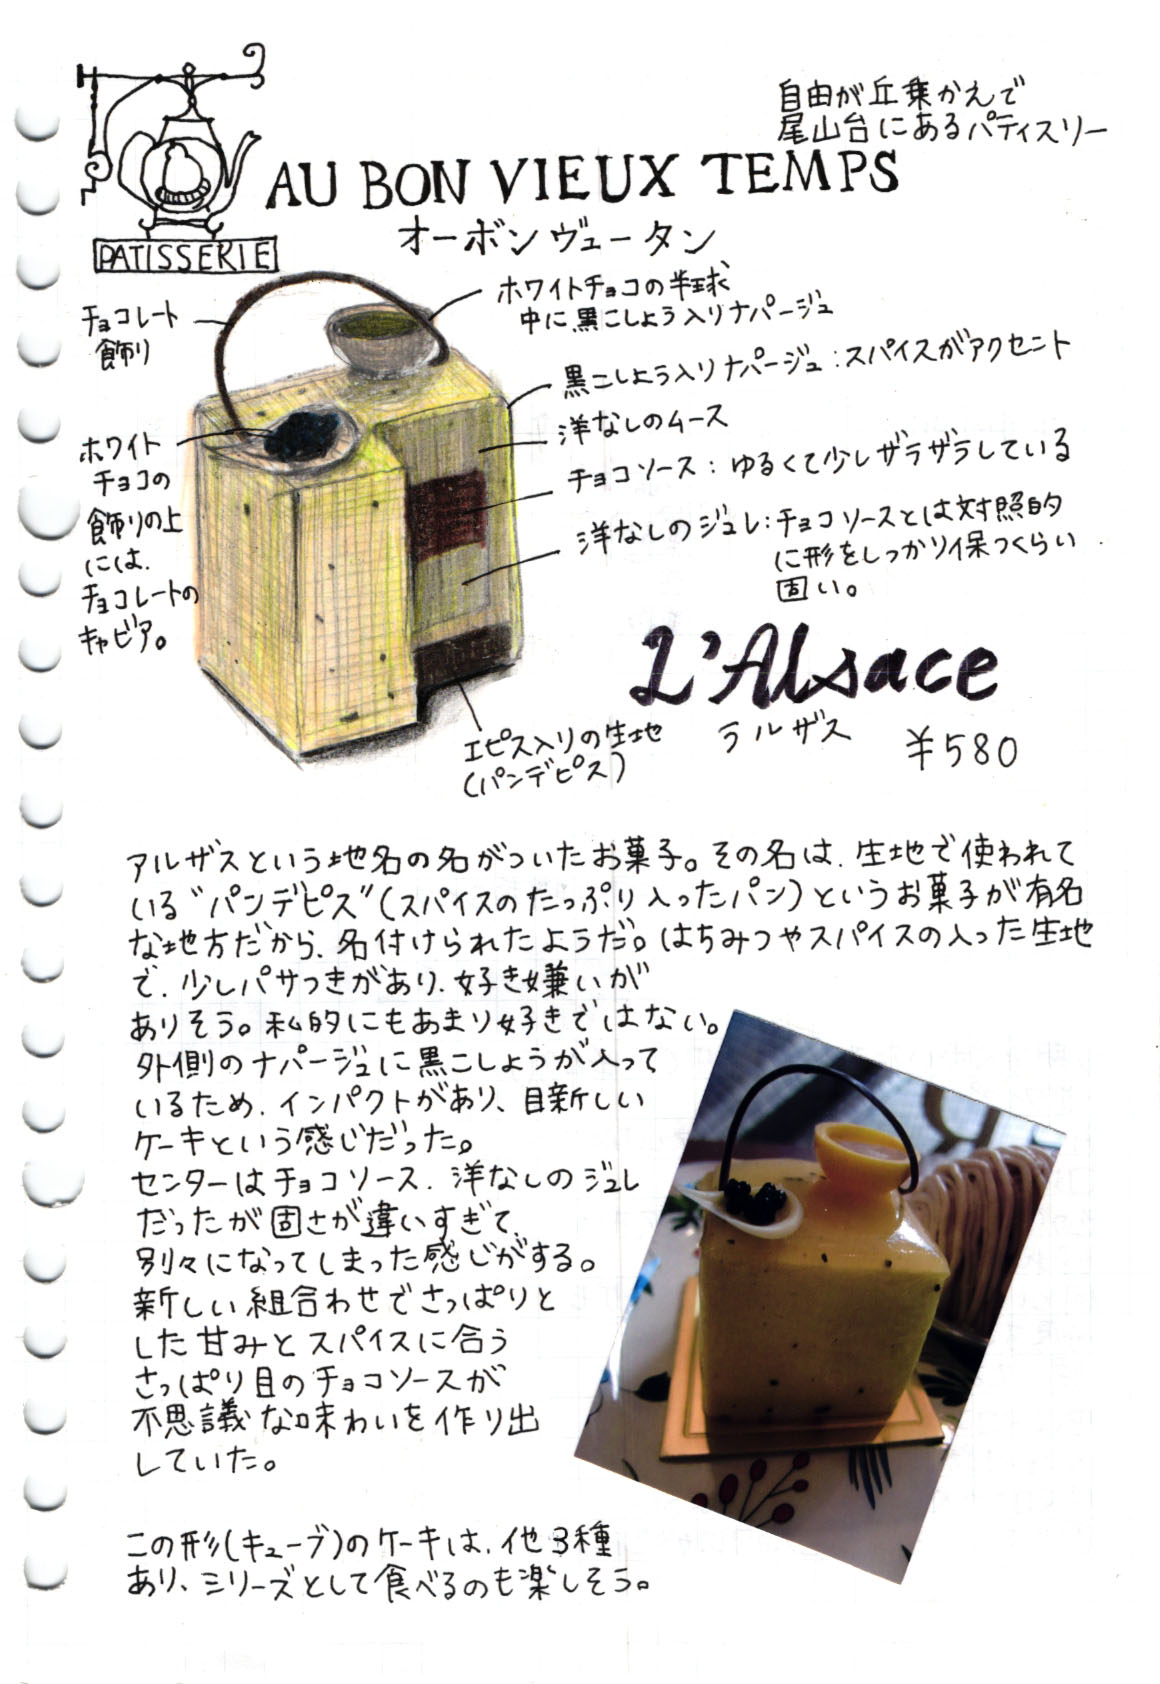 自由が丘乗かえで
尾山台にあるパティスリー
AU BON VIEUX TEMPS
PATISSERIE
オーボンヴュータン
チョコレート
飾り
ホワイトチョコの半球
中に黒こしょう入りナパージュ
黒こしょう入りナパージュ:スパイスがアクセント
洋なしのムース
チョコソース:ゆるくて少しザラザラしている
洋なしのジュレ:チョコソースとは対照的
に形をしっかり保つくらい
固い。
ホワイト
チョコの
飾りの上
には、
チョコレートの
キャビア。
エピス入りの生地
(パンデピス)
L'Alsace
ラルザス
¥580
アルザスという地名の名がついたお菓子。その名は、生地で使われて
いる"パンデピス"(スパイスのたっぷり入ったパン)というお菓子が有名
な地方だから、名付けられたようだ。はちみつやスパイスの入った生地
で、少しパサつきがあり、好き嫌いが
ありそう。私的にもあまり好きではない。
外側のナパージュに黒こしょうが入って
いるため、インパクトがあり、目新しい
ケーキという感じだった。
センターはチョコソース、洋なしのジュレ
だったが固さが違いすぎて、
別々になってしまった感じがする。
新しい組合わせでさっぱりと
した甘みとスパイスに合う
さっぱり目のチョコソースが
不思議な味わいを作り出
していた。
この形(キューブ)のケーキは、他3種
あり、シリーズとして食べるのも楽しそう。